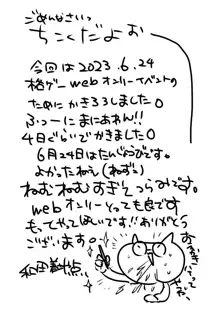 ごめんなさいっ
ちこくだよぉ
今回は2023.6.24
格ゲーwebオンリーイベントの
ためにかきおろしました。
ふつーにまにあれん!!
4日ぐらいでかきました。
6月24日はたんじょうびです。
よかったねぇ(ねず)
ねむねむすぎてつらみです。
webオンリーとっても良です
もってやってほしいです!!ありがとう
ございます。